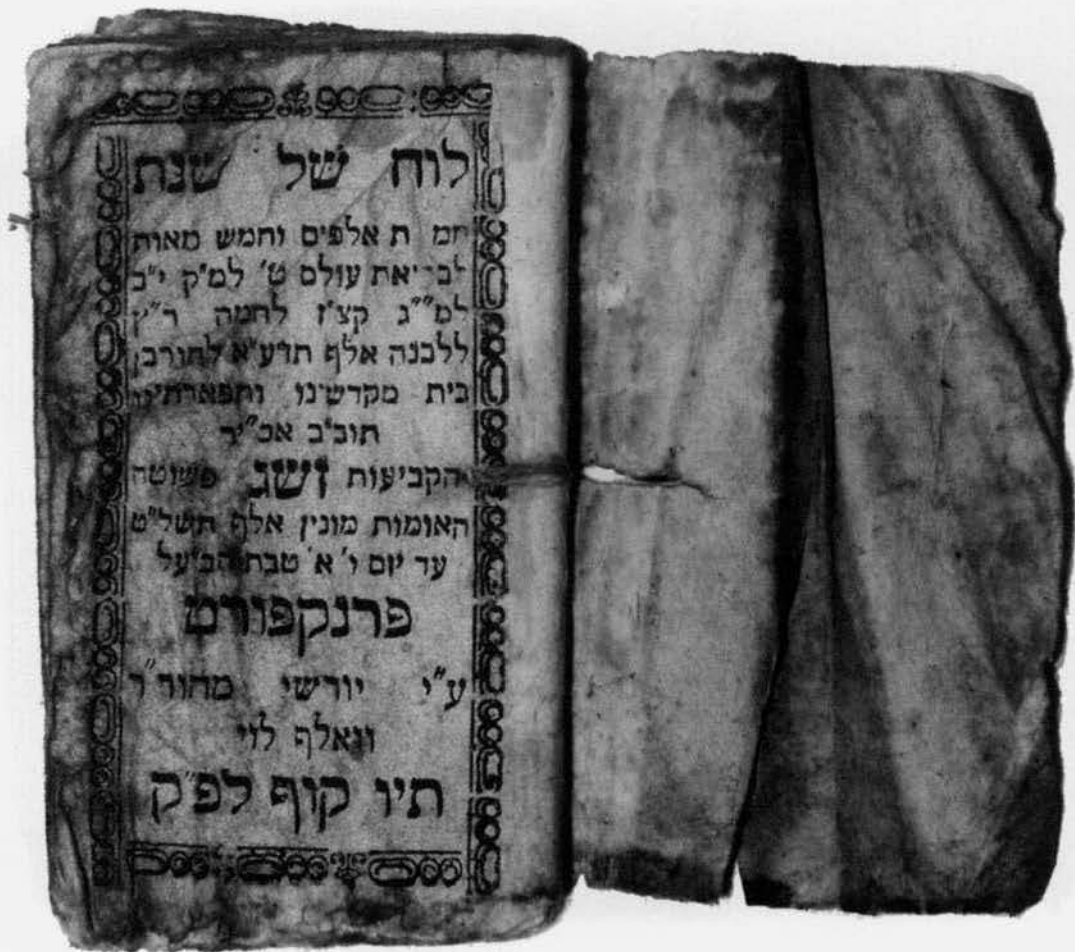 לוח של שנת
ת אלפים וחמש מאות
לבריאת עולם ט' למ"ק י"ב
למ""ג קצ"ז לחמה ר"ץ
ללבנה אלף תדע"א לחורבן
בית מקדשינו ותפארתינו
תוב"ב אכי"ר
הקביעות זשג פשוטה
האומות מונין אלף תשל"ט
עד יום ו' א' טבת הבע"ל
פרנקפורט
ע"י יורשי מהור"ר
וואלף לוי
תיו קוף לפ"ק